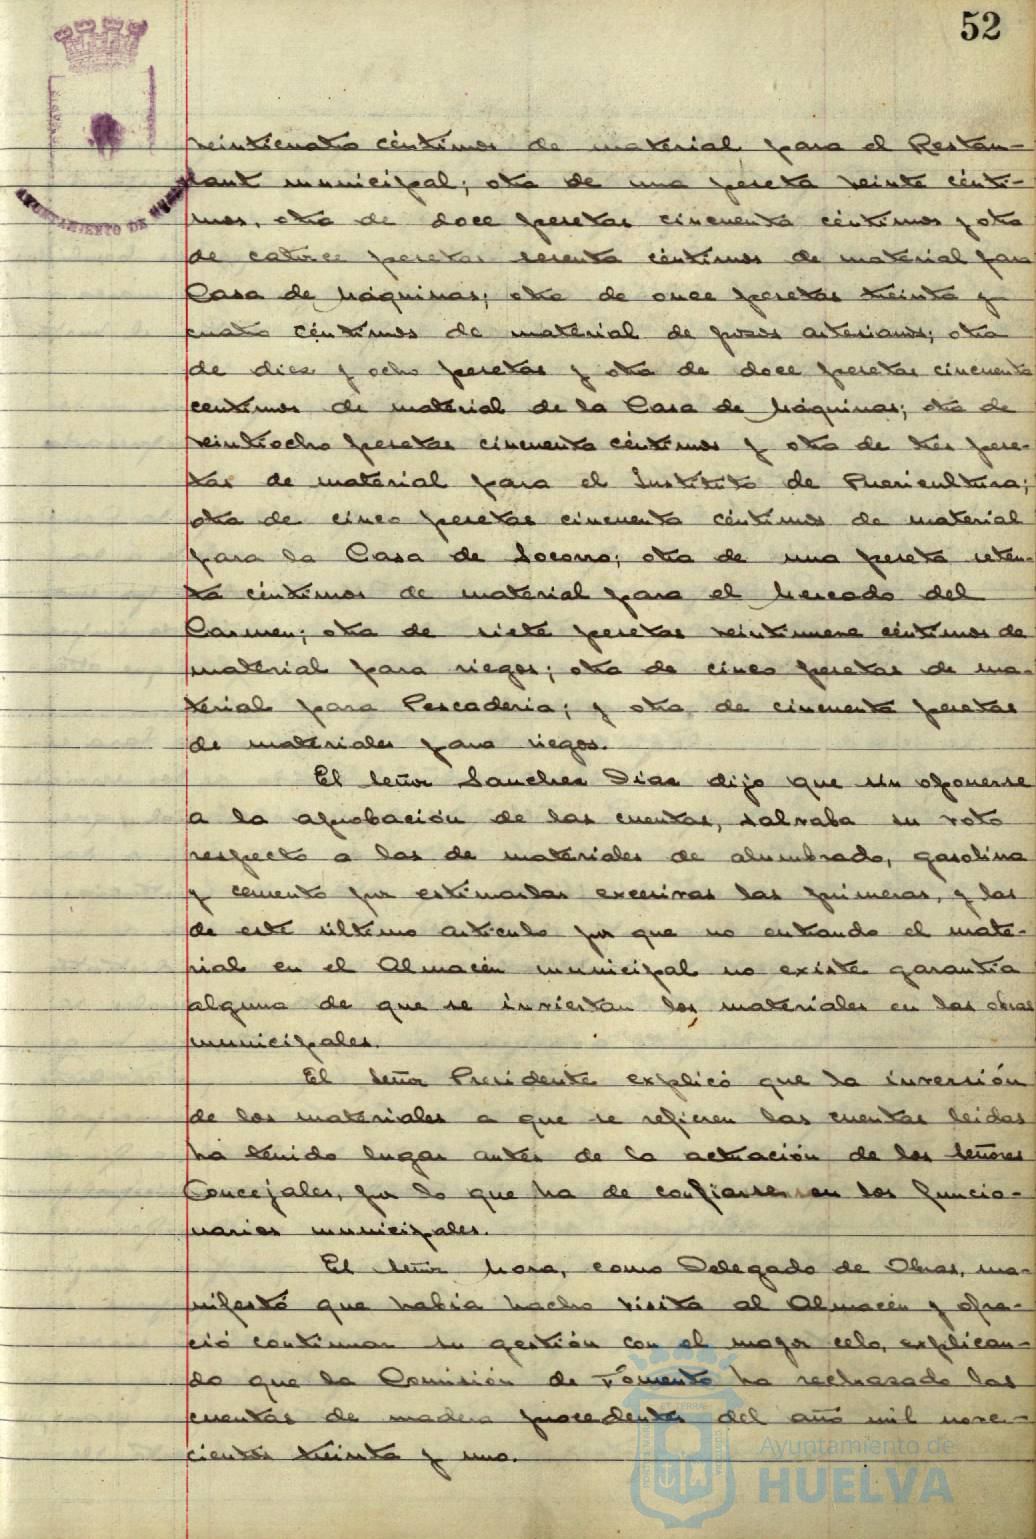 52
AYUNTAMIENTO DE
veinticuatro céntimos de material para el Restau-
rant municipal; otra de una peseta veinte cénti-
mos, otra de doce pesetas cincuenta céntimos y otra
de catorce pesetas sesenta céntimos de material para
Casa de Máquinas; otra de once pesetas treinta y
cuatro céntimos de material de pozos artesianos; otra
de diez y ocho pesetas y otra de doce pesetas cincuenta
centimos de material de la Casa de Máquinas; otra de
veintiocho pesetas cincuenta céntimos y otra de tres pese-
tas de material para el Instituto de Puericultura;
otra de cinco pesetas cincuenta céntimos de material
para la Casa de Socorro; otra de una peseta seten-
ta céntimos de material para el Mercado del
Carmen; otra de siete pesetas veintinueve céntimos de
material para riegos; otra de cinco pesetas de ma-
terial para Pescaderia; y otra de cincuenta pesetas
de materiales para riegos.
El Señor Sanchez Díaz dijo que sin oponerse
a la aprobación de las cuentas, salvaba su voto
respecto a las de materiales de alumbrado, gasolina
y cemento por estimarlas excesivas las primeras, y las
de este último artículo por que no entrando el mate-
rial en el Almacén municipal no existe garantía
alguna de que se inviertan los materiales en las obras
municipales.
El Señor Presidente explicó que la inversión
de los materiales a que se refieren las cuentas leidas
ha tenido lugar antes de la actuación de los Señores
Concejales, por lo que ha de confiarse en los funcio-
narios municipales.
El Señor Mora, como Delegado de Obras, ma-
nifestó que había hecho visita al Almacén y ofre-
ció continuar su gestión con el mayor celo, explican-
do que la Comisión de Fomento ha rechazado las
cuentas de madera procedentes del año mil nove-
cientos treinta y uno.
Ayuntamiento de
HUELVA